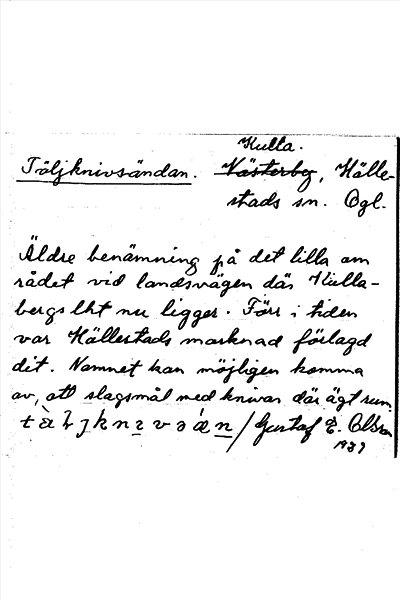 Kulla.
Täljknivsändan. Västerby, Hälle-
stads sn. Ögl.
Äldre benämning på det lilla om
rådet vid landsvägen där Kulla-
bergs lht nu ligger. Förr i tiden
var Hällestads marknad förlagd
dit. Namnet kan möjligen komma
av, att slagsmål med knivar där ägt rum.
/ Gustaf E. Olsson
1939